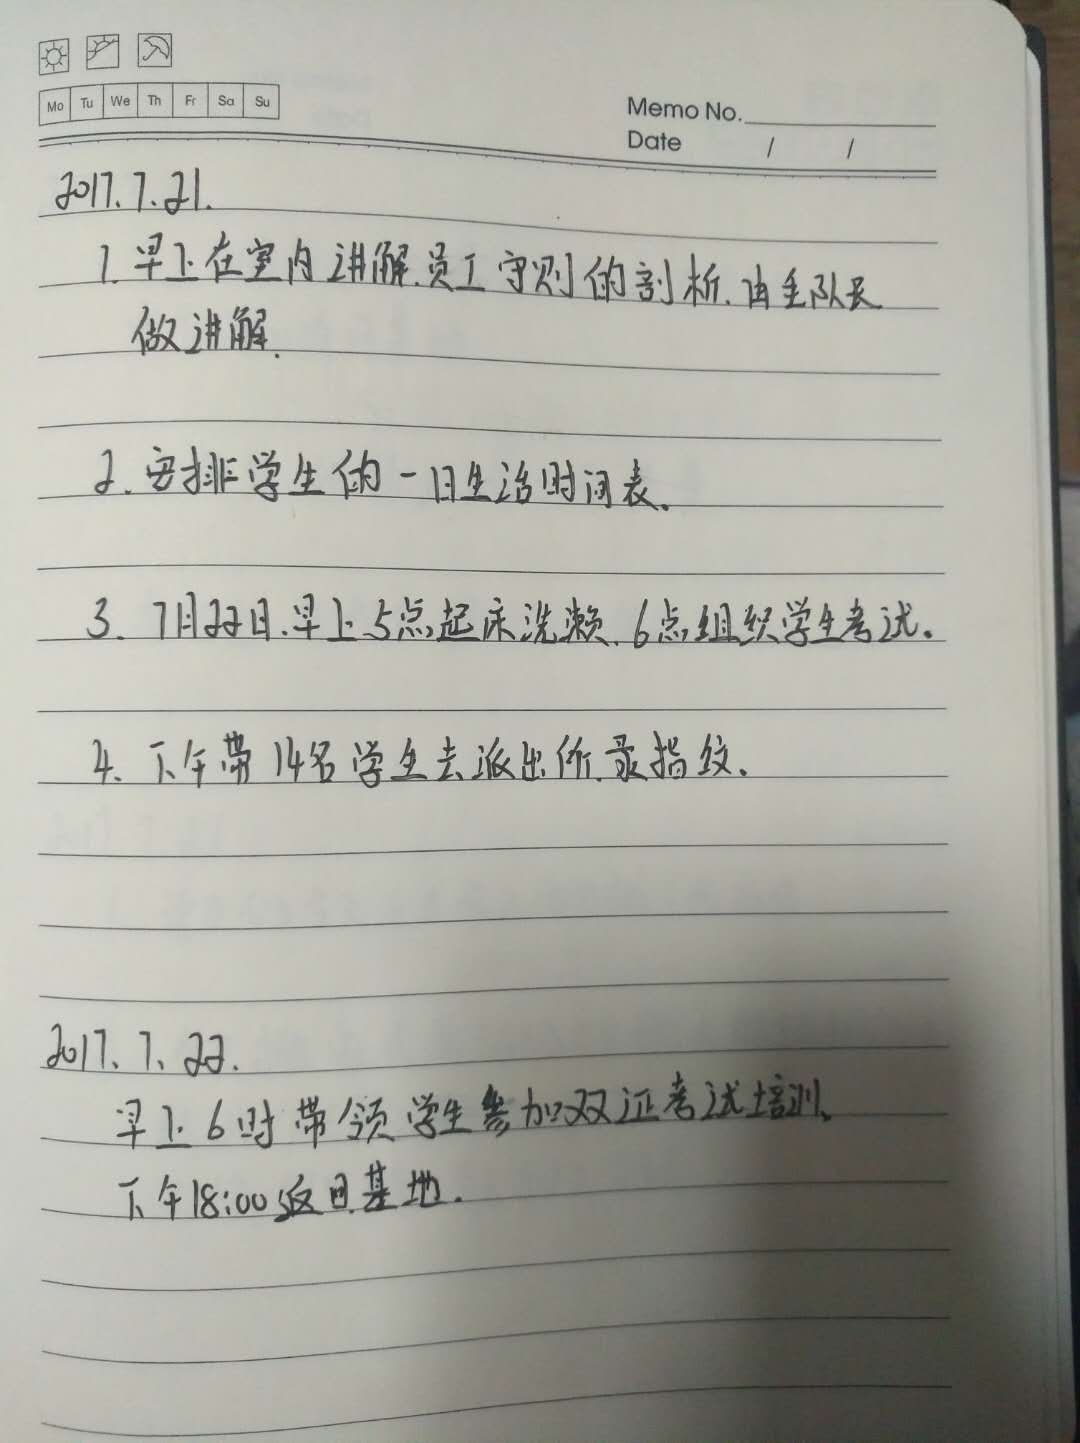 Mo Tu We Th Fr Sa Su
Memo No.
Date / /
2017.7.21.
1.早上在室内讲解.员工守则的剖析.由全队长
做讲解.
2.安排学生的一日生活时间表.
3. 7月22日.早上5点起床洗濑.6点组织学生考试.
4.下午带14名学生去派出所.录指纹.
2017.7.22.
早上6时带领学生参加双证考试培训.
下午18:00返回基地.